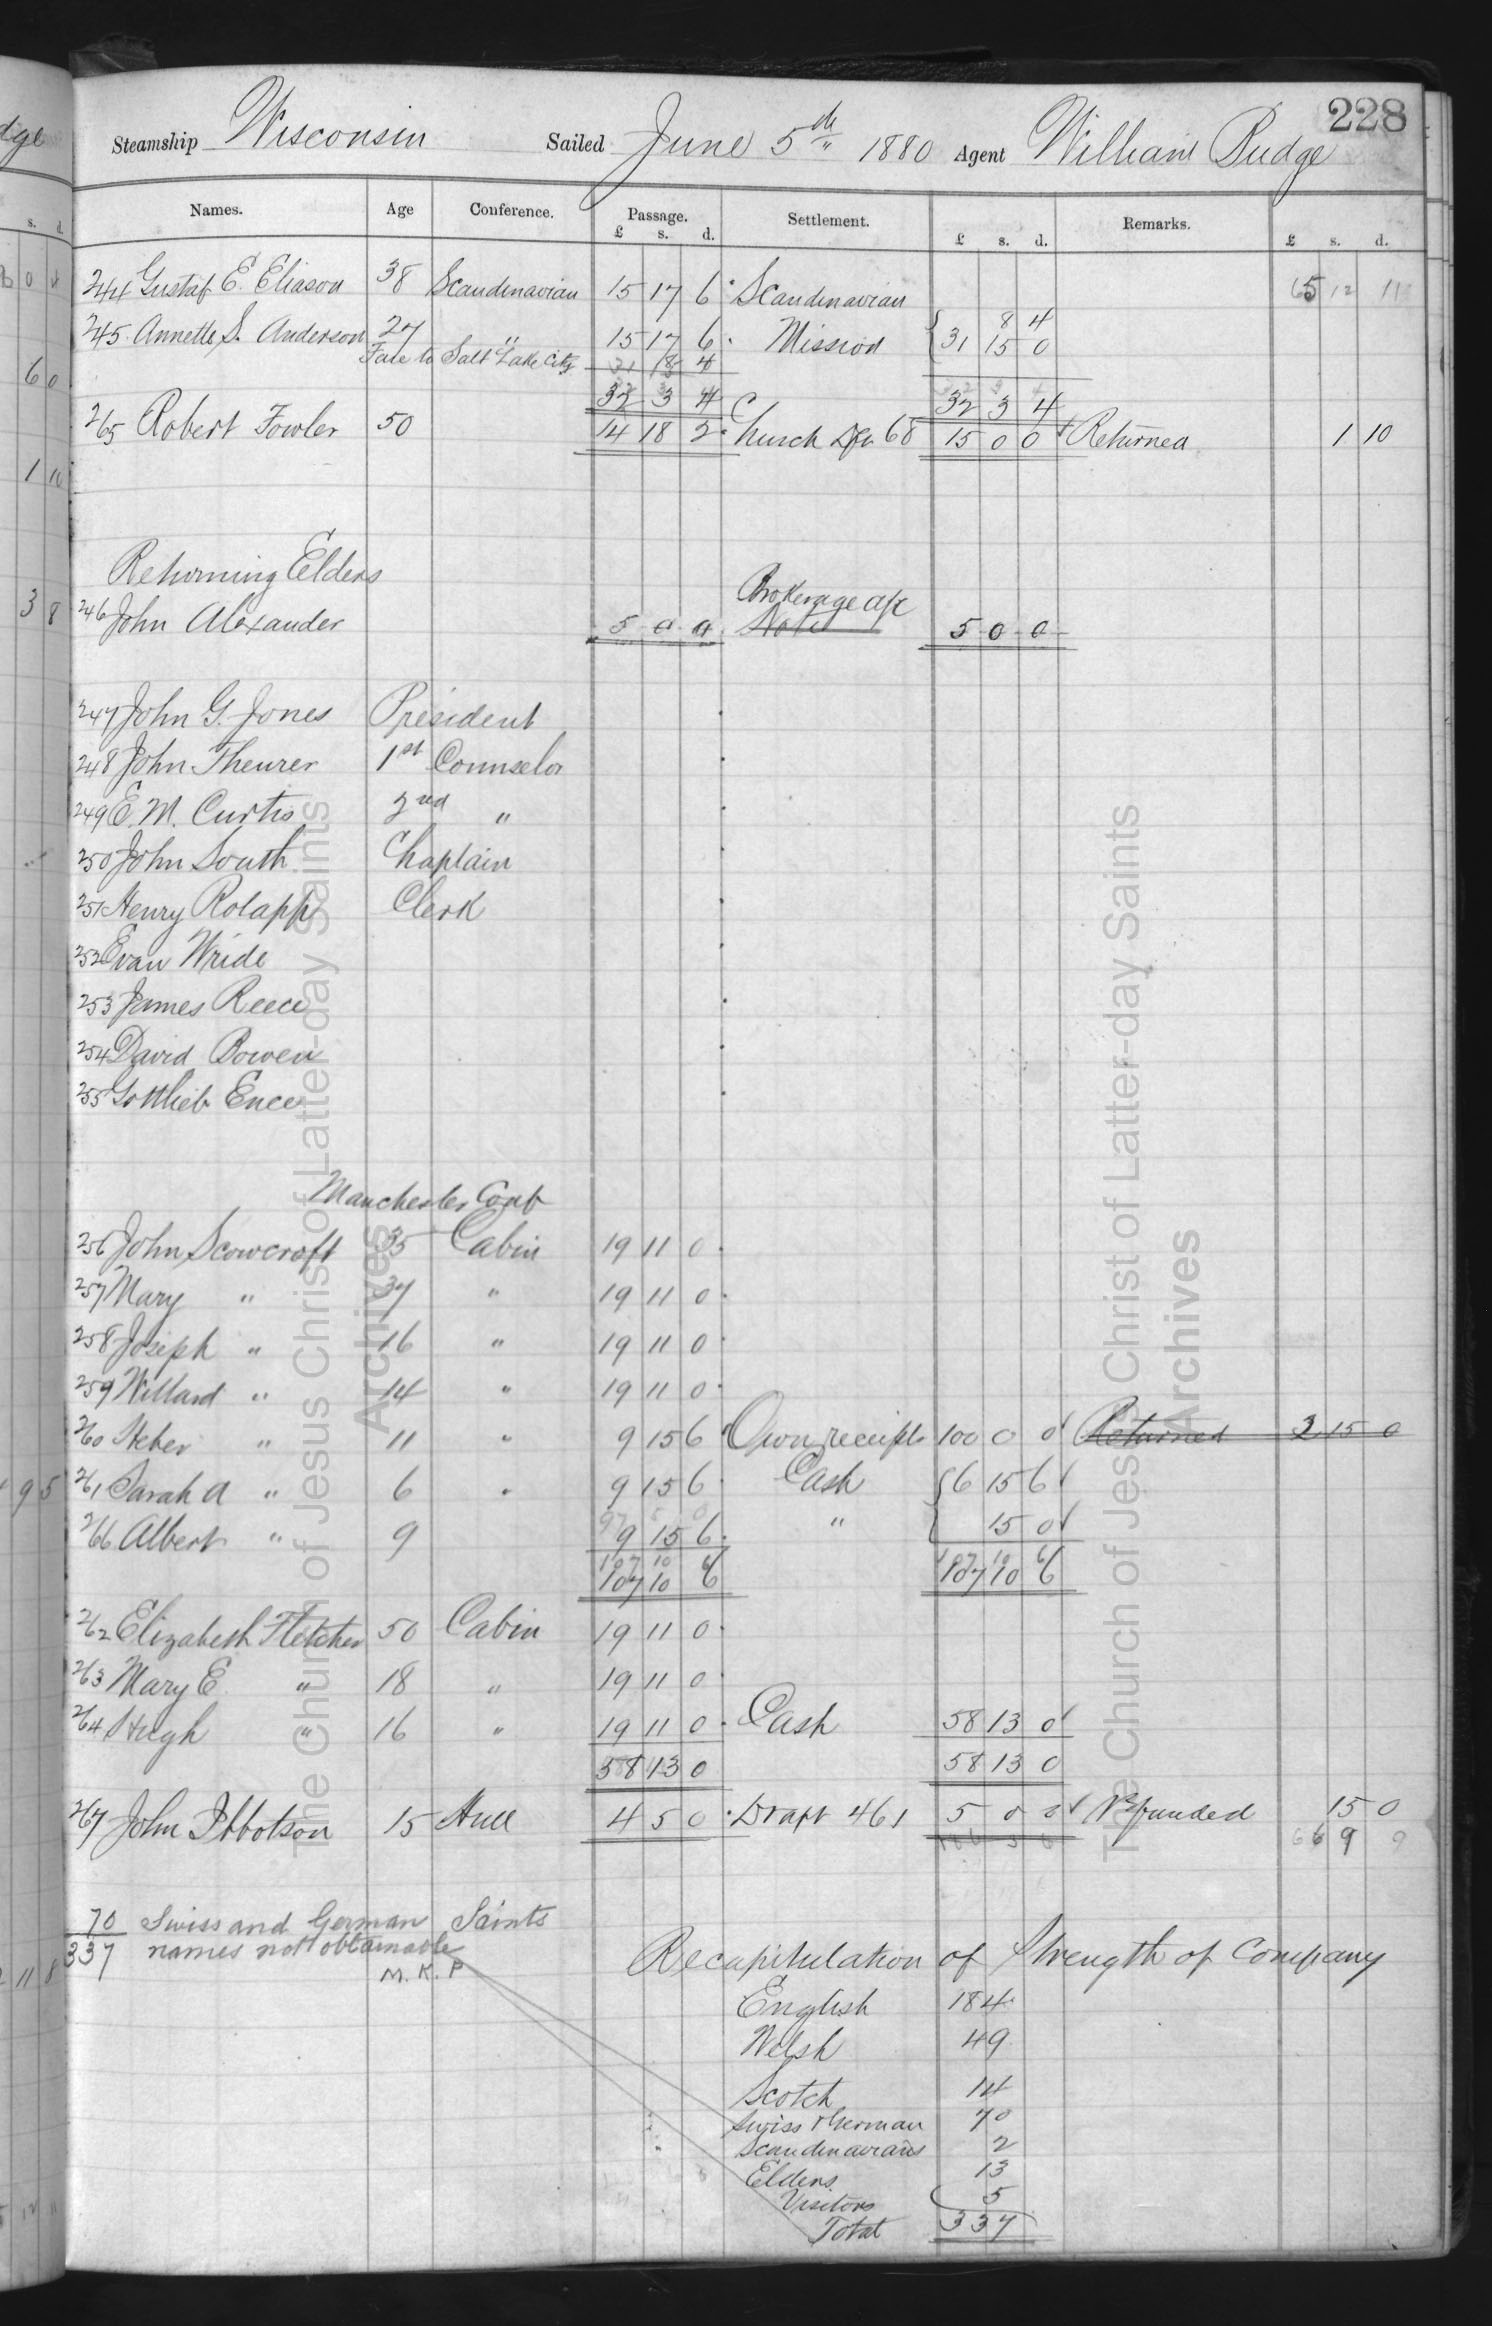 228
Steamship Wisconsin Sailed June 5th 1880 Agent William Budge
Names. Age Conference. Passage. Settlement. Remarks.
£ s. d. £ s. d. £ s. d.
244 Gustaf E. Eliason 38 Scandinavian 15 17 6 Scandinavian 65 12 11
8 4
245 Annette S. Anderson 27 " 15 17 6 Mission 31 15 0
Fare to Salt Lake City 8 4
32 3 4 32 3 4
265 Robert Fowler 50 14 18 2 Church Dfr 68 15 0 0 Returned 1 10
Returning Elders
Brokerage a/c
246 John Alexander 5 0 0 Note 5 0 0
247 John G. Jones President
248 John Theurer 1st Counselor
249 E. M. Curtis 2nd "
250 John South Chaplain
251 Henry Rolapp Clerk
252 Evan Wride
253 James Reece
254 David Bowen
255 Gottlieb Ence
Manchester Conf
256 John Scowcroft 35 Cabin 19 11 0
257 Mary " 37 " 19 11 0
258 Joseph " 16 " 19 11 0
259 Willard " 14 " 19 11 0
260 Heber " 11 " 9 15 6 Own receipts 100 0 0 Returned 2 15 0
261 Sarah A " 6 " 9 15 6 Cash 6 15 6
266 Albert " 9 9 15 6 " 15 0
107 10 6 107 10 6
262 Elizabeth Fletcher 50 Cabin 19 11 0
263 Mary E. " 18 " 19 11 0
264 Hugh " 16 " 19 11 0 Cash 58 13 0
58 13 0 58 13 0
267 John Ibbotson 15 Hull 4 5 0 Draft 461 5 0 0 Refunded 15 0
66 9 9
70 Swiss and German Saints
337 names not obtainable
M. K. P
Recapitulation of Strength of Company
English 184
Welsh 49
Scotch 14
Swiss & German 70
Scandinavians 2
Elders 13
Visitors 5
Total 337
The Church of Jesus Christ of Latter-day Saints
Archives
The Church of Jesus Christ of Latter-day Saints
Archives